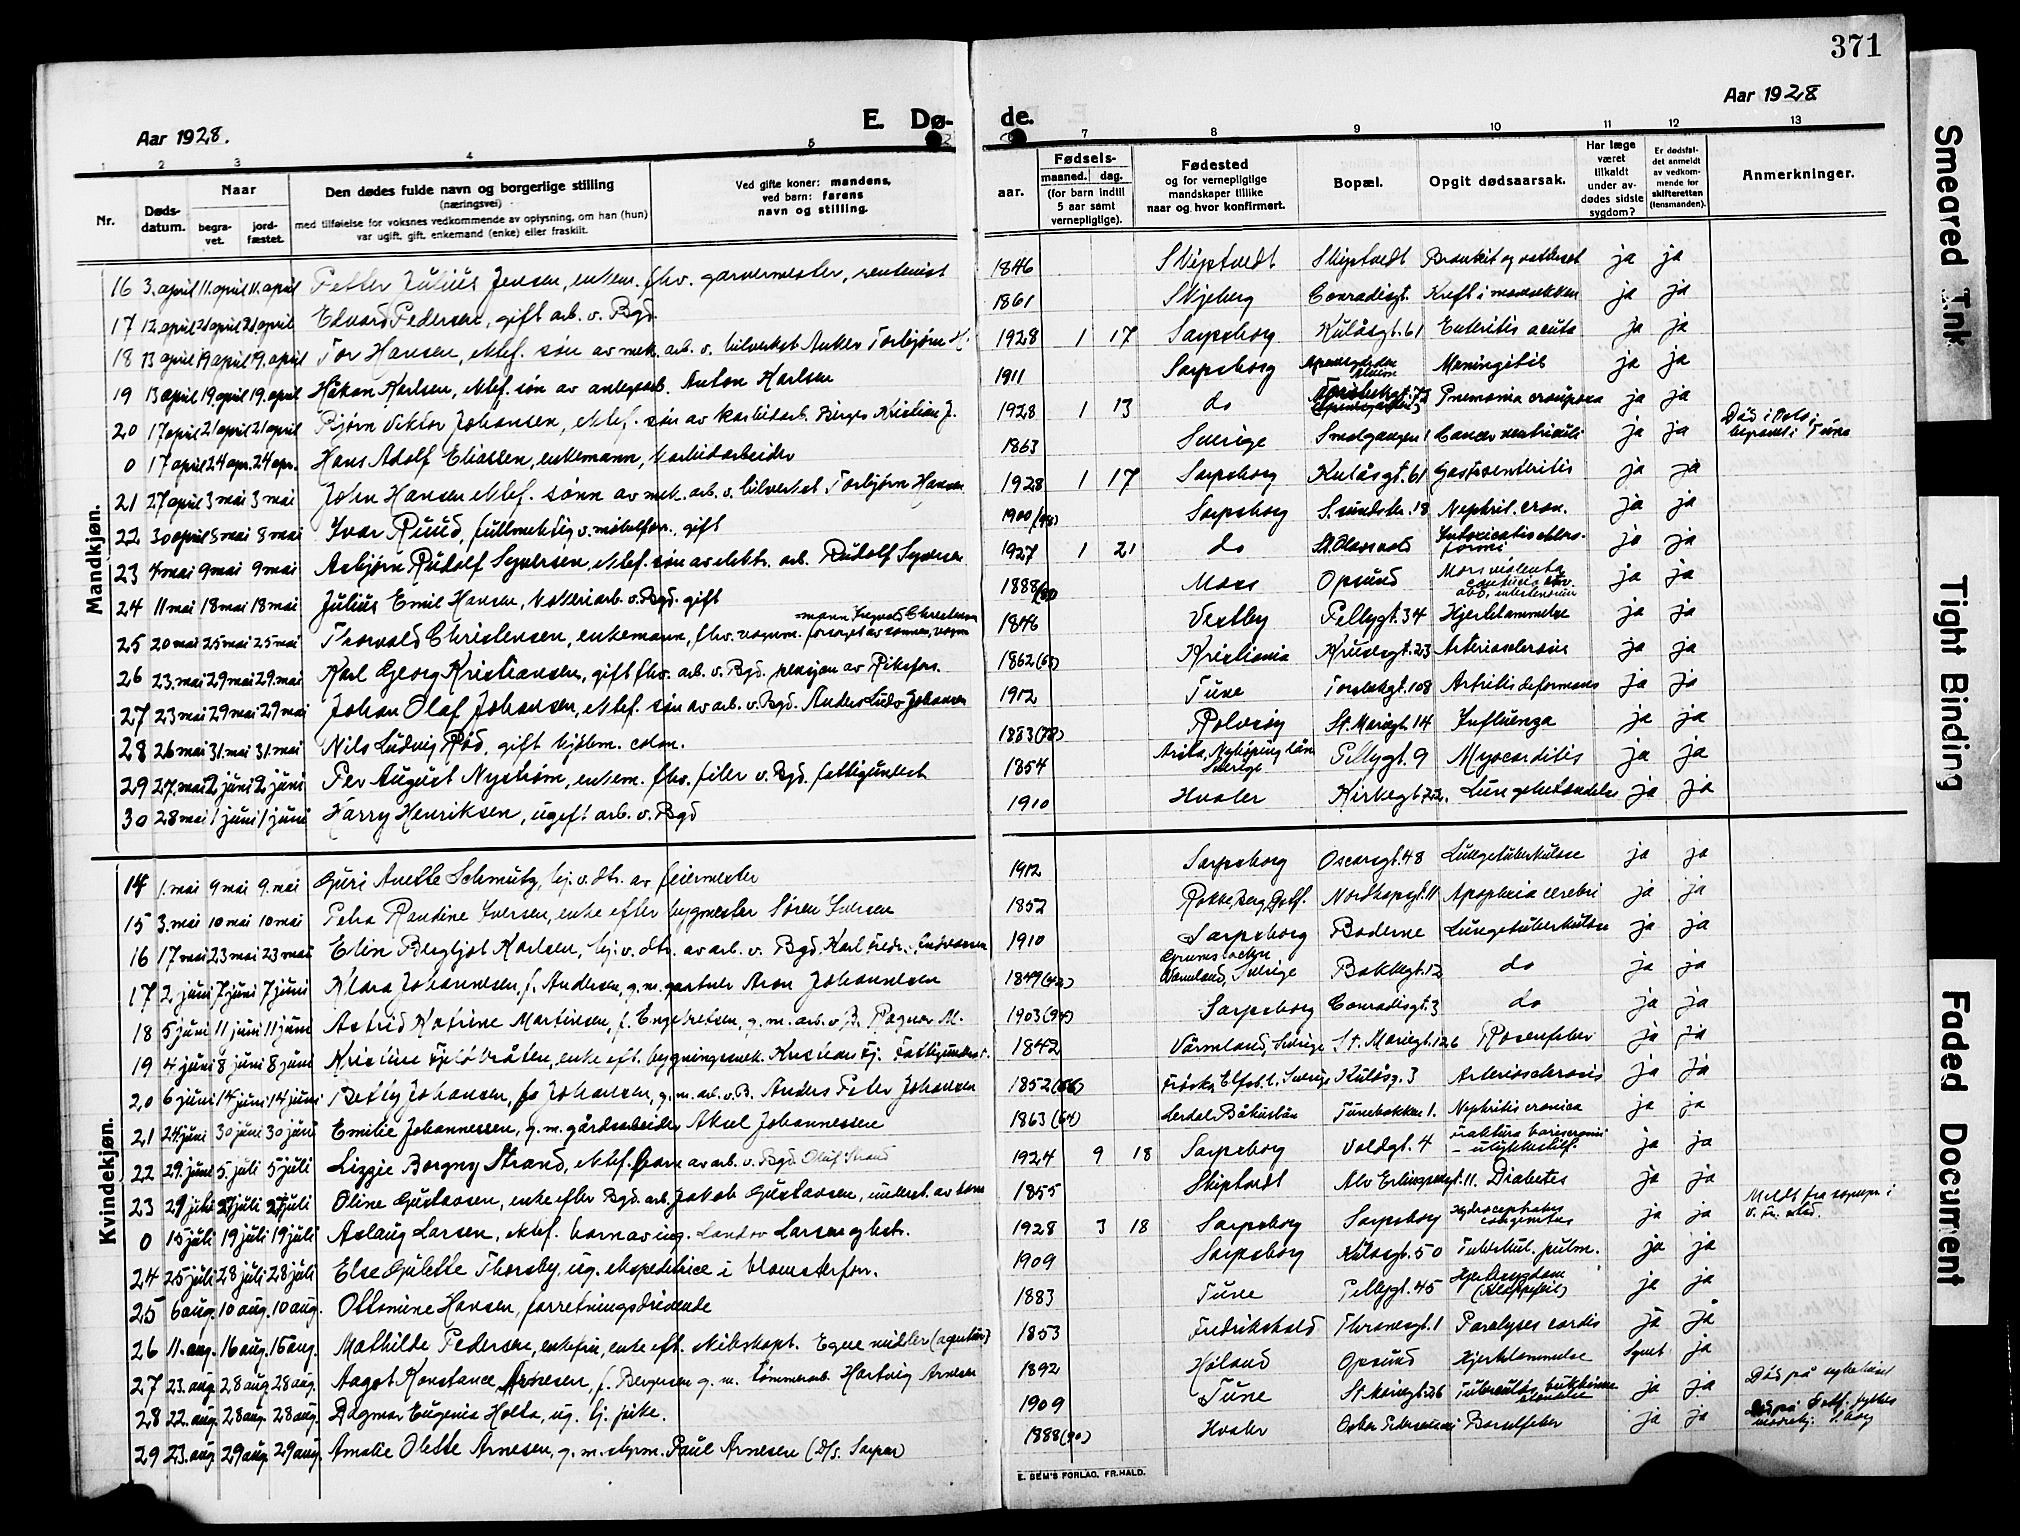 371
Aar 1928.
E. Dø-
de.
Aar 1928
1 2 3 4 5
7 8 9 10 11 12 13
Nr.
Døds-
datum.
Naar
begra-
vet.
jord-
fæstet.
Den dødes fulde navn og borgerlige stilling
(næringsvei)
med tilføielse for voksnes vedkommende av oplysning, om han (hun)
var ugift, gift, enkemand (enke) eller fraskilt.
Ved gifte koner: mandens,
ved barn: farens
navn og stilling.
aar.
Fødsels-
maaned. dag.
(for barn indtil
5 aar samt
vernepligtige).
Fødested
og for vernepligtige
mandskaper tillike
naar og hvor konfirmert.
Bopæl.
Opgit dødsaarsak.
Har læge
været
tilkaldt
under av-
dødes sidste
sygdom?
Er dødsfal-
det anmeldt
av vedkom-
mende før
skifteretten
(lensmanden).
Anmerkninger.
Mandkjøn.
16 3. april 11. april 11. april Petter Julius Jensen, enkem. fhv. garvermester, rentenist 1846 Skiptvedt Skiptvedt ja ja
17 12 april 21 april 21 april Edvard Pedersen, gift arb. v. Bgd. 1861 Skjeberg Conradisgt. Kreft i mavsekken ja ja
18 13 april 19 april 19. april Tor Hansen, ektef. søn av mek. arb. v. bilverkst. Anker Torbjørn H. 1928 1 17 Sarpsborg Kulåsgt. 61 Enteritis acuta ja ja
19 13 april 19 april 19. april Håkon Karlsen, ektef. søn av anlegsarb. Anton Karlsen 1911 Sarpsborg Meningitis ja ja
20 17 april 21 april 21 april Bjørn Viktor Johansen, ektef. søn av karbidarb. Birger Kristian J. 1928 1 13 do Pnemonia croupøsa ja ja
0 17 april 24 apr. 24 apr. Hans Adolf Eliassen, enkemann, karbidarbeider 1863 Sverige Smalgangen 1 Cancer ventriculi ja ja Død i Oslo, begravet i Tune
21 27 april 3 mai 3 mai John Hansen ektef. sønn av mek. arb. v. bilverkst. Torbjørn Hansen 1928 1 17 Sarpsborg Kulåsgt. 61 Gastroenteritis ja ja
22 30 april 8 mai 8 mai Ivar Ruud, fullmektig v. møbelforr. gift 1900 Sarpsborg S. sundstr. 18 Nephrit. cron. ja ja
23 4 mai 9 mai 9 mai Asbjørn Rudolf Syversen, ektef. søn av elektr. arb. Rudolf Syversen 1927 1 21 do St. Olavsvold ja ja
24 11 mai 18 mai 18 mai Julius Emil Hansen, kokeriarb. v. Bgd. gift 1888 Moss Opsund Mors violenta ja ja
25 20 mai 25 mai 25 mai Thorvald Christensen, enkemann, fhv. vognm. forsørget av sønnen, vogn-
mann Christensen 1846 Vestby Pellygt. 34 Hjertelammelse ja ja
26 23. mai 29 mai 29. mai Karl Georg Kristiansen, gift fhv. arb. v. Bgd. pensjon av Riksfors. 1862 Kristiania Krusesgt. 23 Arteriosclerosis ja ja
27 23 mai 29 mai 29 mai Johan Olaf Johansen, ektef. søn av arb. v. Bgd. Anders Ludv Johansen 1912 Tune Torsbekgt. 108 Artritis deformans ja ja
28 26 mai 31. mai 31. mai Nils Ludvig Rød, gift kjøbm. colon. 1883 Rolvsøy St. Mariegt. 14 Influenza ja ja
29 27. mai 2 juni 2 juni Per August Nystrøm, enkem. fhv. filer v. Bgd. fattigunderst 1854 Nykøping län Sverige Pellygt. 9 Myocarditis ja ja
30 28 mai 1 juni 1 juni Harry Henriksen, ugift arb. v. Bgd 1910 Hvaler Kirkegt. 72. Lungebetændelse ja ja
Kvindekjøn.
14 1. mai 9 mai 9. mai Guri Anette Schmutz, hj. v. dtr. av feiermester 1912 Sarpsborg Oscarsgt. 48 Lungetuberkulose ja ja
15 3. mai 10 mai 10 mai Petra Randine Iversen, enke efter bygmester Søren Iversen 1852 Nordkapsgt. 11 Apoplexia cerebri ja ja
16 17 mai 23 mai 23 mai Elin Bergljot Karlsen, hj. v. dtr. av arb. v. Bgd. Karl Fredr. 1910 Sarpsborg Boderne Lungetuberkulose ja ja
17 2 juni 7 juni 7 juni Klara Johannesen, f. Andersen, g. m. gartner Aron Johannesen 1849 Värmland, Sverige Bakkegt. 12 do ja ja
18 5 juni 11 juni 11 juni Astrid Katrine Martinsen, f. Engebretsen, g. m. arb. v. B. Ragnar M. 1903 Sarpsborg Conradisgt. 3 do ja ja
19 4 juni 8 juni 8 juni Kristine Fjeldbråten, enke eft. bygningssnek. Kristian Fj. Fattigunderst. 1842 Värmland, Sverige St. Mariegt. 126 Rosenfeber ja ja
20 6 juni 14 juni 14 juni Betty Johansen, f. Johansen, g. m. arb. v. B. Anders Peter Johansen 1852 Elfsb. l. Sverige Kulåsg. 3 Arteriosclerosis ja ja
21 24. juni 30 juni 30 juni Emilie Johannessen, g. m. gårdsarbeider Aksel Johannessen 1863 (64) Båhuslän Tunebakken 1. Nephritis cronica ja ja
22 29. juni 5. juli 5 juli Lizzie Borgny Strand, ektef. barn av arb. v. Bgd. Oluf Strand 1924 9 18 Sarpsborg Voldgt. 4 - ulykkestilf. ja ja
23 Oline Gustavsen, enke efter Bgd. arb. Jakob Gustavsen, underst. av 1855 Skiptvedt Diabetes ja ja
0 15 juli 19 juli 19 juli Aslaug Larsen, ektef. barn av Larsen 1928 3 18 Sarpsborg Sarpsborg Hydrocephalus congenitus ja ja Meldt fra sognepr. i
24 25 juli 28 juli 28 juli Else Gulette Thorsby, ug. ekspeditrice i blomsterforr. 1909 Sarpsborg Kulåsgt. 50 Tuberkul. pulm. ja ja
25 6 aug. 10 aug. 10 aug. Ottomine Hansen, forretningsdrivende 1883 Tune Pellygt. 45 Hjertesygdom (klappfeil) ja ja
26 11. aug. 16 aug. 16 aug. Mathilde Pedersen, enkefru, enke eft. skibskapt. Egne midler (agentur) 1853 Fredrikshald Thranesgt. 1 Paralyses cordis ja ja
27 23. aug. 28 aug. 28 aug. Aagot Konstance Arnesen, f. Bergersen g. m. tømmerarb. Hartvig Arnesen 1892 Høland Opsund Hjertelammelse ja
28 22. aug. 28 aug. 28 aug. Dagmar Eugenia Holte, ug. hj. pike. 1909 Tune St. Mariegt. 26 ja ja Død på sykehuset
29 23. aug. 29 aug. 29 aug. Amalie Olette Arnesen, g. m. styrm. Paul Arnesen (D/S. Sarpen) 1888 Hvaler Barselfeber ja ja
E. SEM'S FORLAG, FR.HALD.
Smeared Ink
Tight Binding
Faded Document